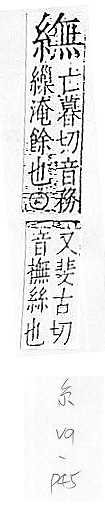 䌗
亡暮切音務
繅淹餘也㊁
又斐古切
音撫絲也
糸
V9
、
P45